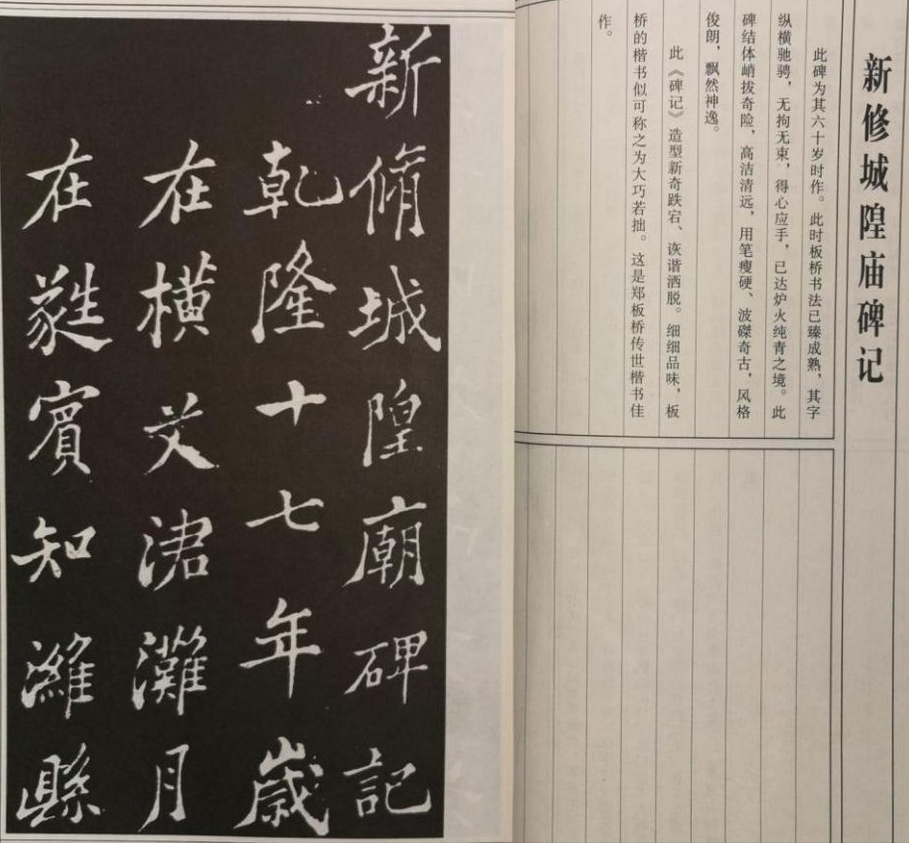 新修城隍庙碑记
此碑为其六十岁时作。此时板桥书法已臻成熟，其字
纵横驰骋，无拘无束，得心应手，已达炉火纯青之境。此
碑结体峭拔奇险，高洁清远，用笔瘦硬、波磔奇古，风格
俊朗，飘然神逸。
此《碑记》造型新奇跌宕、诙谐洒脱。细细品味，板
桥的楷书似可称之为大巧若拙。这是郑板桥传世楷书佳
作。
新脩城隍廟碑記
乾隆十七年歲
在橫艾涒灘月
在蕤賓知濰縣